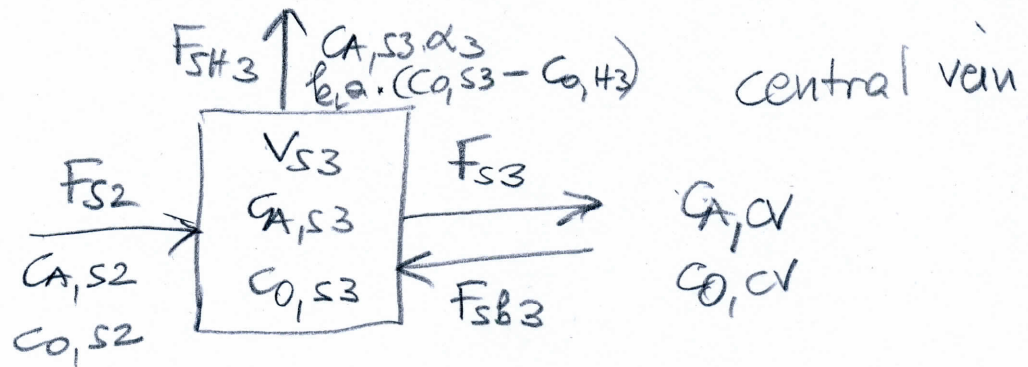 F_SH3
C_A,S3·α_3
k_la·(C_O,S3 − C_O,H3)
central vein
V_S3
C_A,S3
C_O,S3
F_S2
C_A,S2
C_O,S2
F_S3
F_Sb3
C_A,CV
C_O,CV